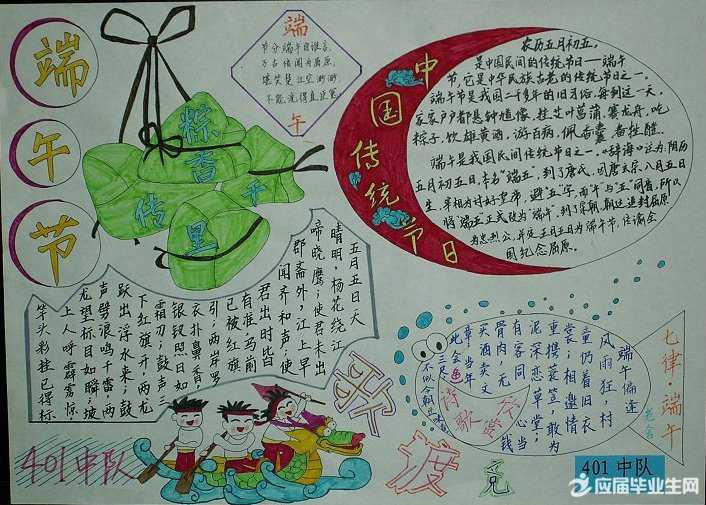 端
午
节
粽
香
传
里
千
端
节分端午自谁言,
万古传闻为屈原;
堪笑楚江空渺渺,
不能洗得直臣冤。
午
中国传统节日
农历五月初五,
是中国民间的传统节日——端午
节,它是中华民族古老的传统节日之一。
端午节是我国二千多年的旧习俗,每到这一天,
家家户户都悬钟馗像,挂艾叶菖蒲,赛龙舟,吃
粽子,饮雄黄酒,游百病,佩香囊,备牲醴。
端午是我国民间传统节日之一。《辞海》记为,阴历
五月初五日,本名“端五”,到了唐代,因唐玄宗八月五日
生,宰相为讨好皇帝,避“五”字,而“午”与“五”同音,所以
将“端五”正式改为“端午”,到了宋朝,朝廷追封屈原
为忠烈公,并定五月五日为端午节,传谕全
国纪念屈原。
五月五日天
晴明,杨花绕江
啼晓鹰;使君未出
郡斋外,江上早
闻齐和声;使
君出时皆
有准,马前
已被红旗
引;两岸罗
衣扑鼻香,
银钗照日如
霜刃;鼓声三
下红旗开,两龙
跃出浮水来;鼓
声劈浪鸣千雷,两
龙望标目如瞬;坡
上人呼霹雳惊,
竿头彩挂已得标
竞
渡
歌
七律·端午
老舍
端午偏逢
风雨狂,村
童仍着旧衣
裳;相邀情
重携蓑笠,敢为
泥深恋草堂;
有客同心当
骨肉,无钱
买酒卖文
章;当年
此会鱼
三尺,
诗歌
401中队
401中队
应届毕业生网